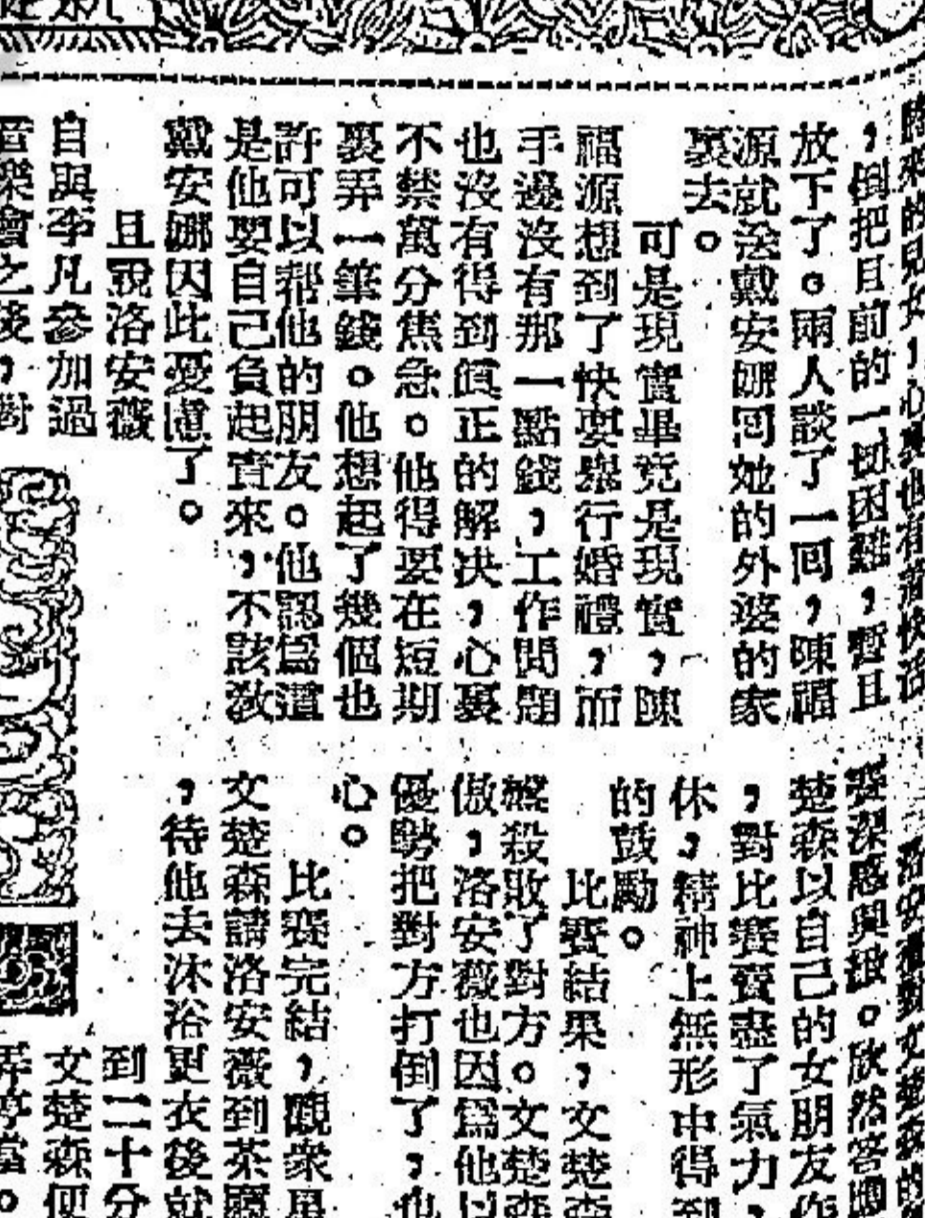 時來的兒女,心裏也有着快活
,倒把目前的一切困難,暫且
放下了。兩人談了一囘,陳福
源就送戴安娜囘她的外婆的家
裏去。
可是現實畢竟是現實,陳
福源想到了快要舉行婚禮,而
手邊沒有那一點錢,工作問題
也沒有得到真正的解決,心裏
不禁萬分焦急。他得要在短期
裏弄一筆錢。他想起了幾個也
許可以帮他的朋友。他認爲這
是他要自己負起責來,不該教
戴安娜因此憂慮了。
且說洛安薇
自與李凡參加過
音樂會之後,對
洛安薇對文楚森的
要深感興趣。欣然答應
楚森以自己的女朋友作
,對比賽賣盡了氣力,
休,精神上無形中得到
的鼓勵。
比賽結果,文楚森
殺敗了對方。文楚森
傲,洛安薇也因爲他以
優勢把對方打倒了,也
心。
比賽完結,觀衆
文楚森請洛安薇到茶廳
,待他去沐浴更衣後就
到二十分
文楚森便
弄亭當。